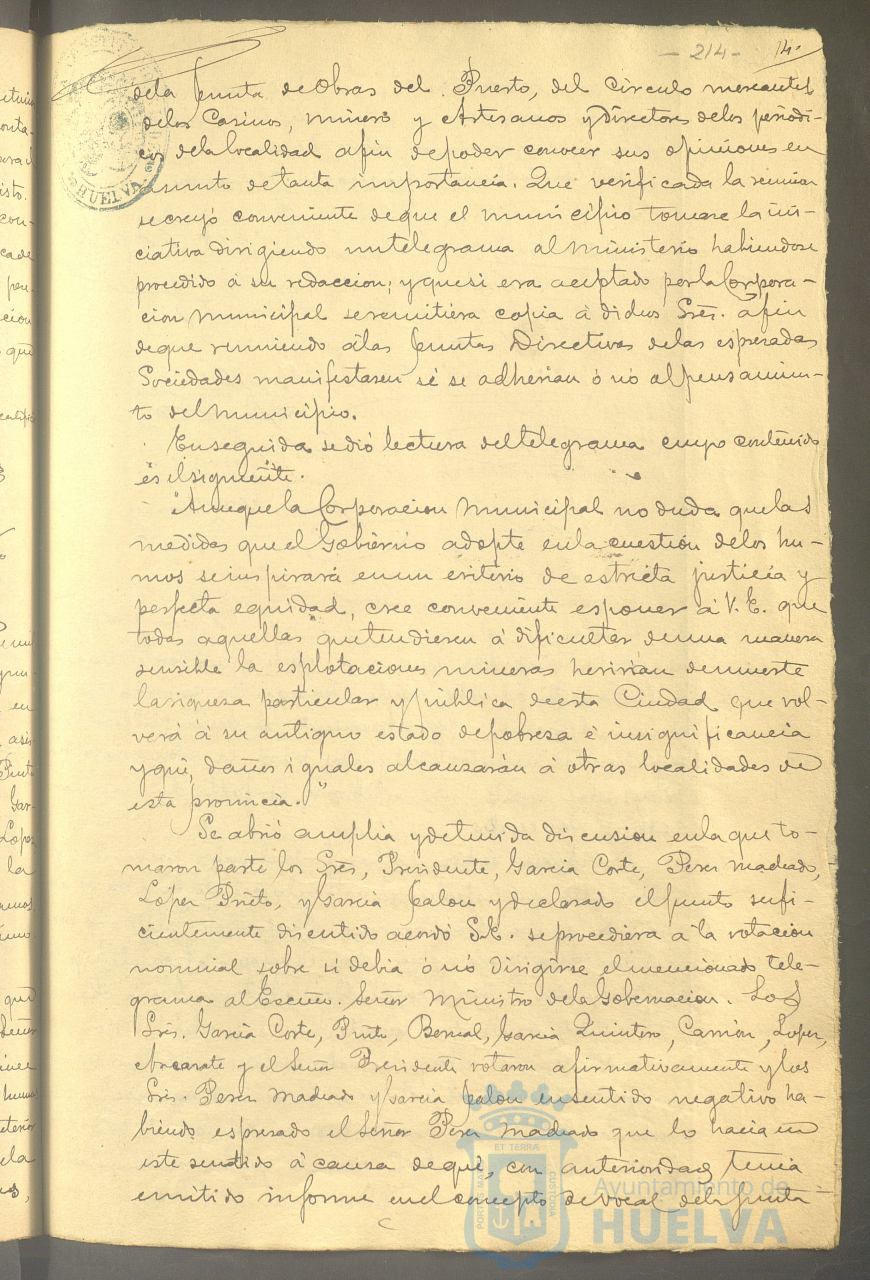 - 214 - 14.
dela Junta de Obras del Puerto, del Circulo mercantil
delos Casinos, minero y Artesanos y directores delos periodi-
cos dela localidad afin depoder conocer sus opiniones en
asunto detanta importancia. Que verificada la reunion
secreyó conveniente deque el municipio tomare la ini-
ciativa dirigiendo untelegrama al Ministerio habiendose
procedido á su redaccion; yquesi era aceptado porla Corpora-
cion Municipal seremitiera copia á dichos Sres. afin
deque reuniendo álas Juntas Directivas delas espresadas
Sociedades manifestasen si se adherian ó nó alpensamien-
to del Municipio.
Enseguida sedió lectura deltelegrama cuyo contenido
es elsiguiente.
"Aunquela Corporacion Municipal no duda quelas
medidas que el Gobierno adopte enla cuestion delos hu-
mos seinspirará enun criterio de estricta justicia y
perfecta equidad, cree conveniente esponer á V.E. que
todas aquellas quetendiesen á dificultar deuna manera
sensible la esplotaciones mineras heririan demuerte
lariqueza particular y pública deesta Ciudad que vol-
verá á su antiguo estado depobreza é insignificancia
yque, daños iguales alcanzarán á otras localidades de
esta provincia."
Se abrió amplia ydetenida discusion enla que to-
maron parte los Sres, Presidente, Garcia Corte, Perez Machado,
López Prieto, y Garcia Jalon ydeclarado elpunto sufi-
cientemente discutido acordó S.E. seprocediera á la votacion
nominal sobre si debia ó nó dirigirse elmencionado tele-
grama al Excmo. Señor Ministro dela Gobernacion. Los
Sres. Garcia Corte, Prieto, Bernal, Garcia Quintero, Carrion, Lopez,
Azcarate y el Señor Presidente votaron afirmativamente ylos
Sres. Perez Machado y Garcia Jalon ensentido negativo ha-
biendo espresado el Señor Perez Machado que lo hacia en
este sentido á causa deque, con anterioridad, tenia
emitido informe enel concepto de vocal dela Junta
HUELVA
ET TERRÆ
PORTUS MARIS
CUSTODIA
Ayuntamiento de
HUELVA